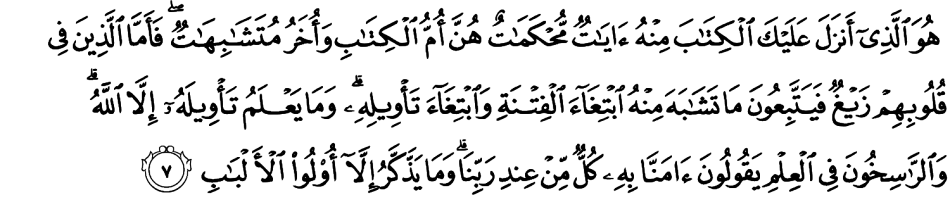 هُوَ ٱلَّذِىٓ أَنزَلَ عَلَيْكَ ٱلْكِتَٰبَ مِنْهُ ءَايَٰتٌ مُّحْكَمَٰتٌ هُنَّ أُمُّ ٱلْكِتَٰبِ وَأُخَرُ مُتَشَٰبِهَٰتٌ ۖ فَأَمَّا ٱلَّذِينَ فِى
قُلُوبِهِمْ زَيْغٌ فَيَتَّبِعُونَ مَا تَشَٰبَهَ مِنْهُ ٱبْتِغَآءَ ٱلْفِتْنَةِ وَٱبْتِغَآءَ تَأْوِيلِهِۦ ۗ وَمَا يَعْلَمُ تَأْوِيلَهُۥٓ إِلَّا ٱللَّهُ ۗ
وَٱلرَّٰسِخُونَ فِى ٱلْعِلْمِ يَقُولُونَ ءَامَنَّا بِهِۦ كُلٌّ مِّنْ عِندِ رَبِّنَا ۗ وَمَا يَذَّكَّرُ إِلَّآ أُو۟لُوا۟ ٱلْأَلْبَٰبِ ٧